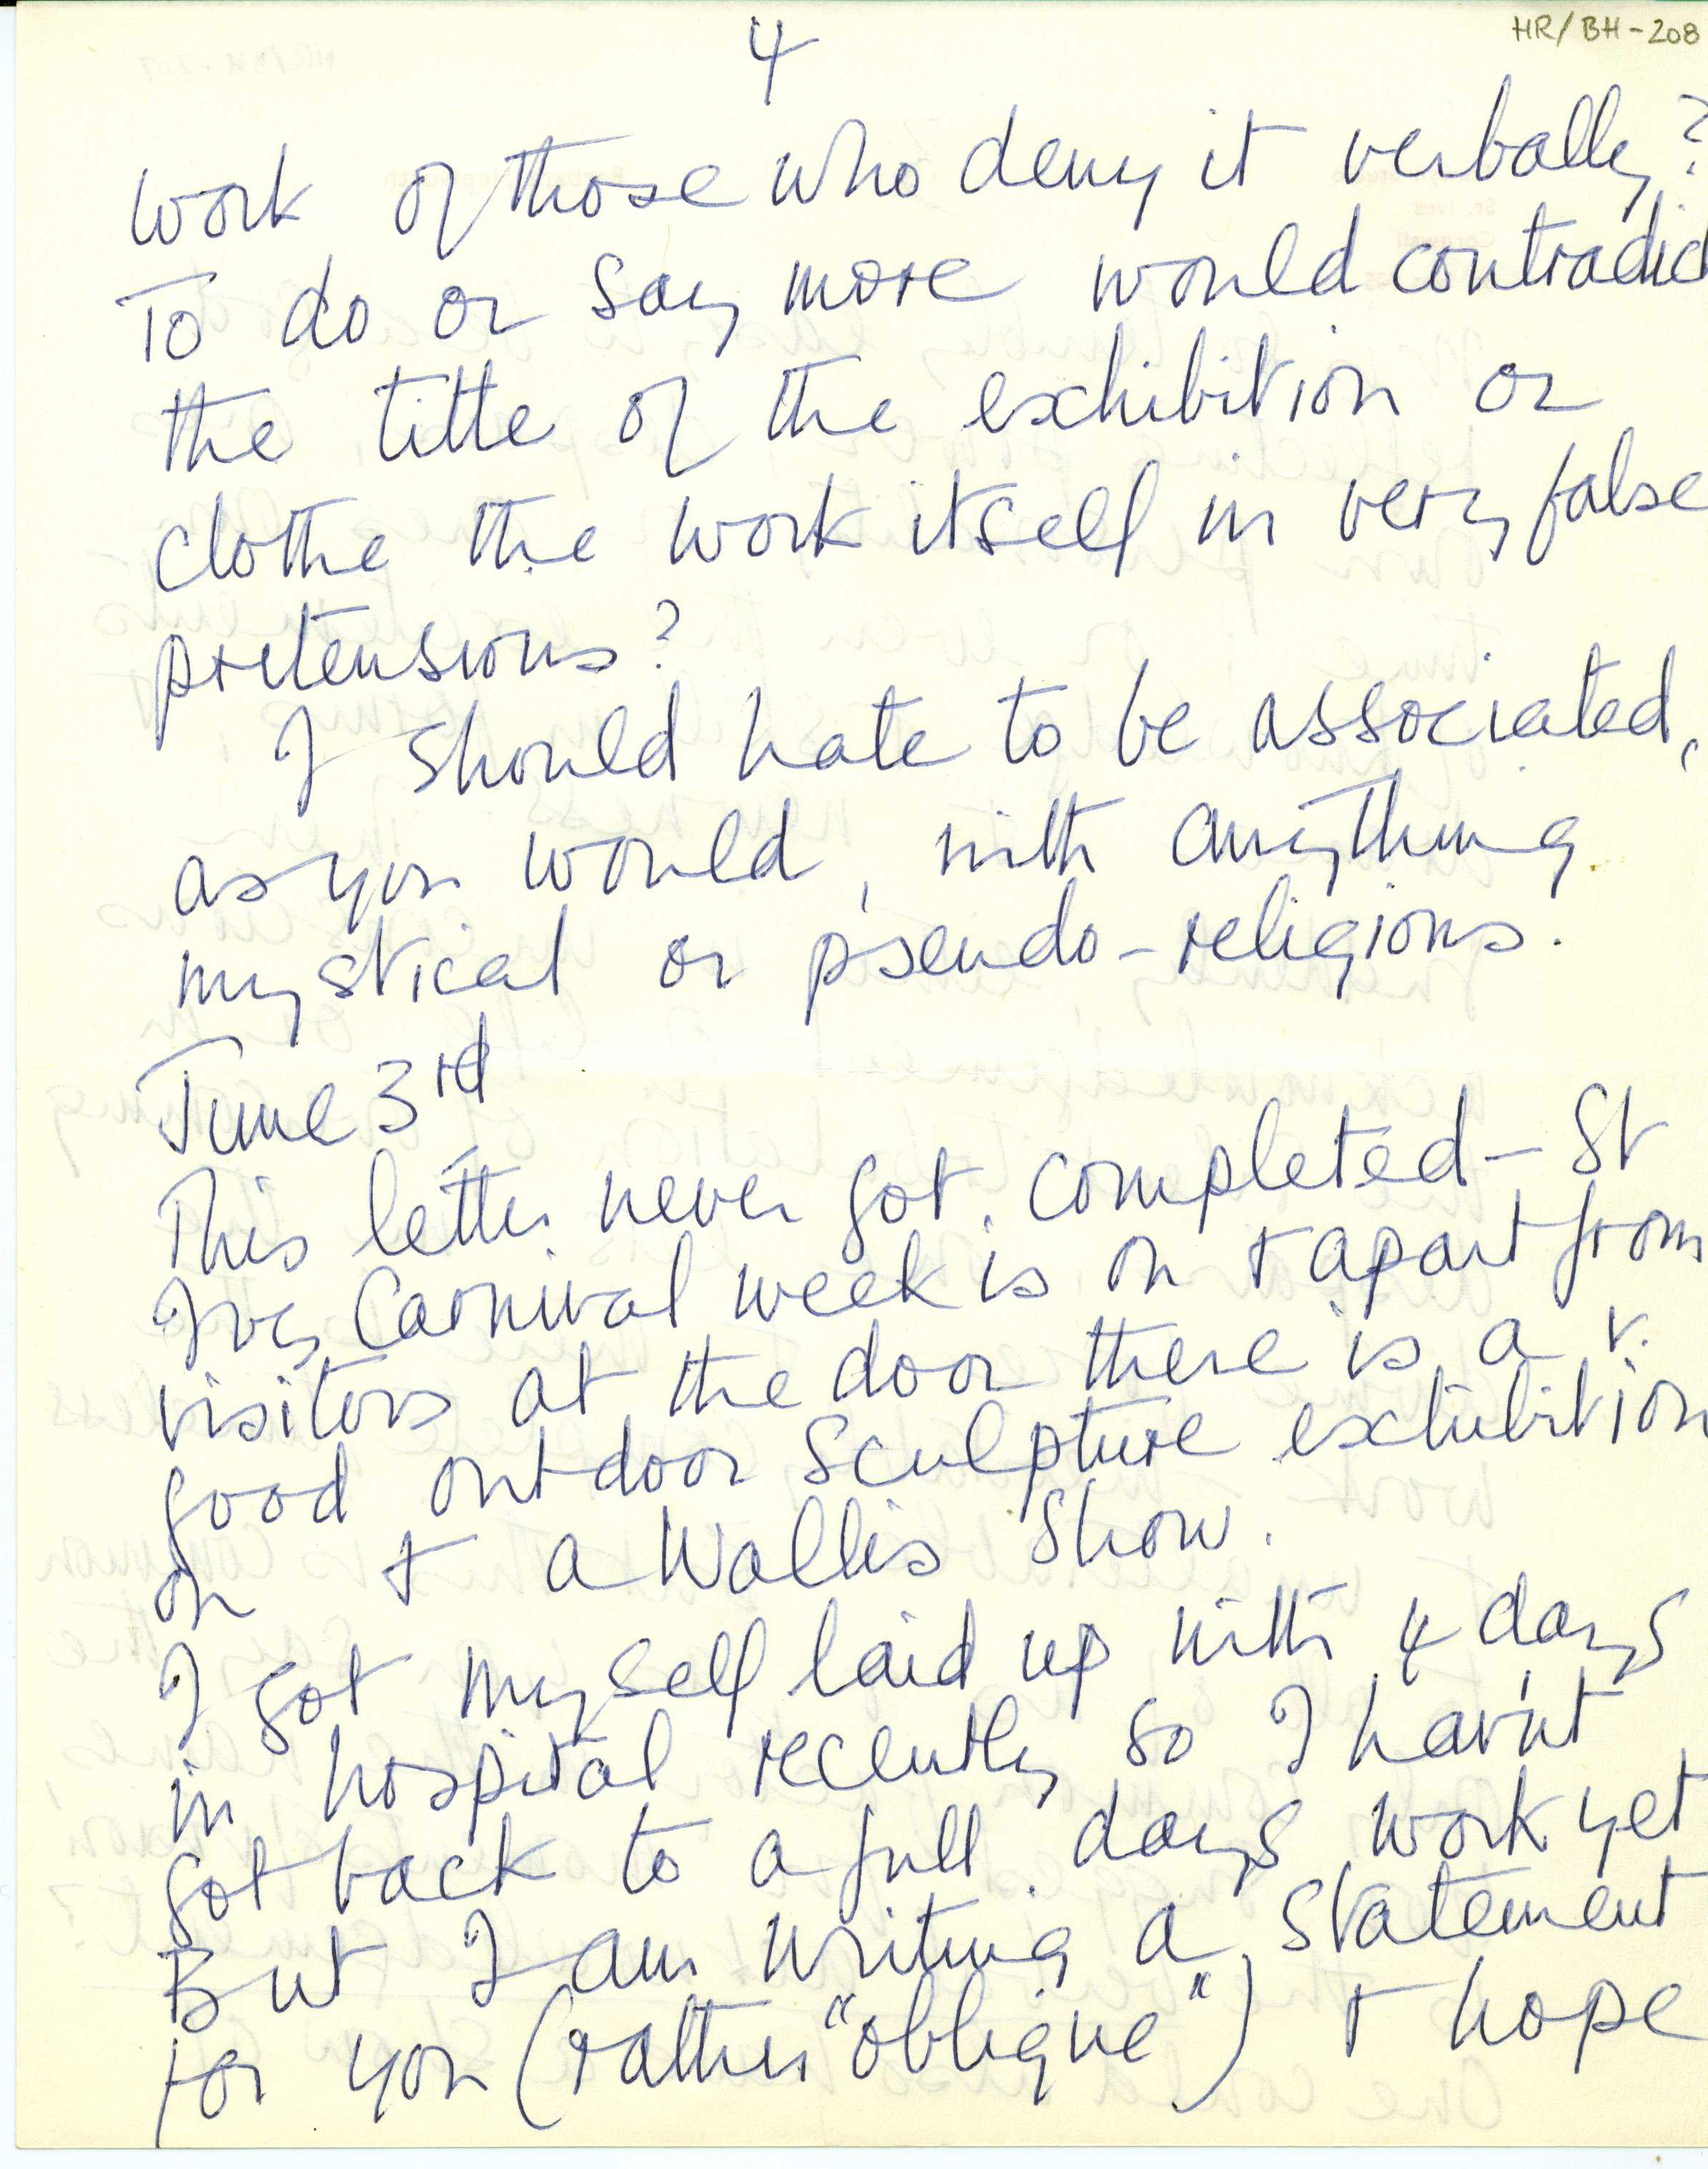 4
HR/BH-208
work of those who deny it verbally?
To do or say more would contradict
the title of the exhibition or
clothe the work itself in very false
pretensions?
I should hate to be associated,
as you would, with anything
mystical or pseudo-religious.
June 3rd
This letter never got completed - St
Ives Carnival week is on + apart from
visitors at the door there is a v.
good outdoor sculpture exhibition
on + a Wallis show.
I got myself laid up with 4 days
in hospital recently so I hav'nt
got back to a full days work yet
But I am writing a statement
for you (rather "oblique") + hope